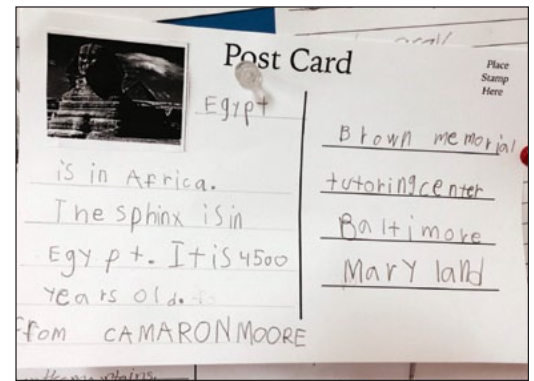 Post Card
Place
Stamp
Here
Egypt
is in Africa.
The sphinx is in
Egypt. It is 4500
years old.
from CAMARON MOORE
Brown memorial
tutoringcenter
Baltimore
Maryland